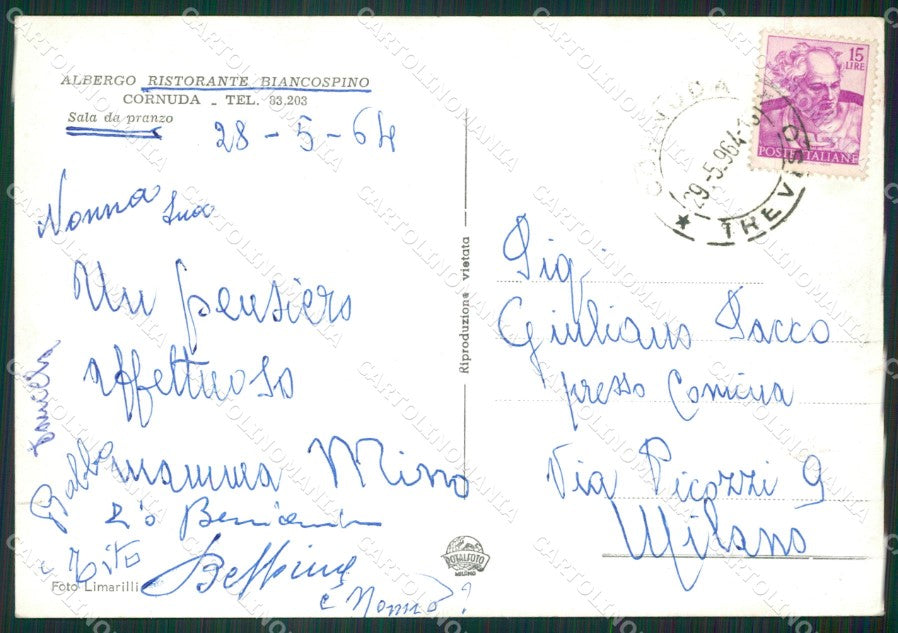 ALBERGO RISTORANTE BIANCOSPINO
CORNUDA - TEL. 83.203
Sala da pranzo
28-5-64
Nonna
Un pensiero
affettuoso
Babbo mamma Mirro
e Tito
Beppina
e Nonno?
Foto Limarilli
Riproduzione vietata
ROTALFOTO
MILANO
15
LIRE
POSTE ITALIANE
CORNUDA
29.-5.964-18
* TREVISO
Sig.
Giuliano Sacco
presso Comina
Via Picozzi 9
Milano
CARTOLINOMANIA